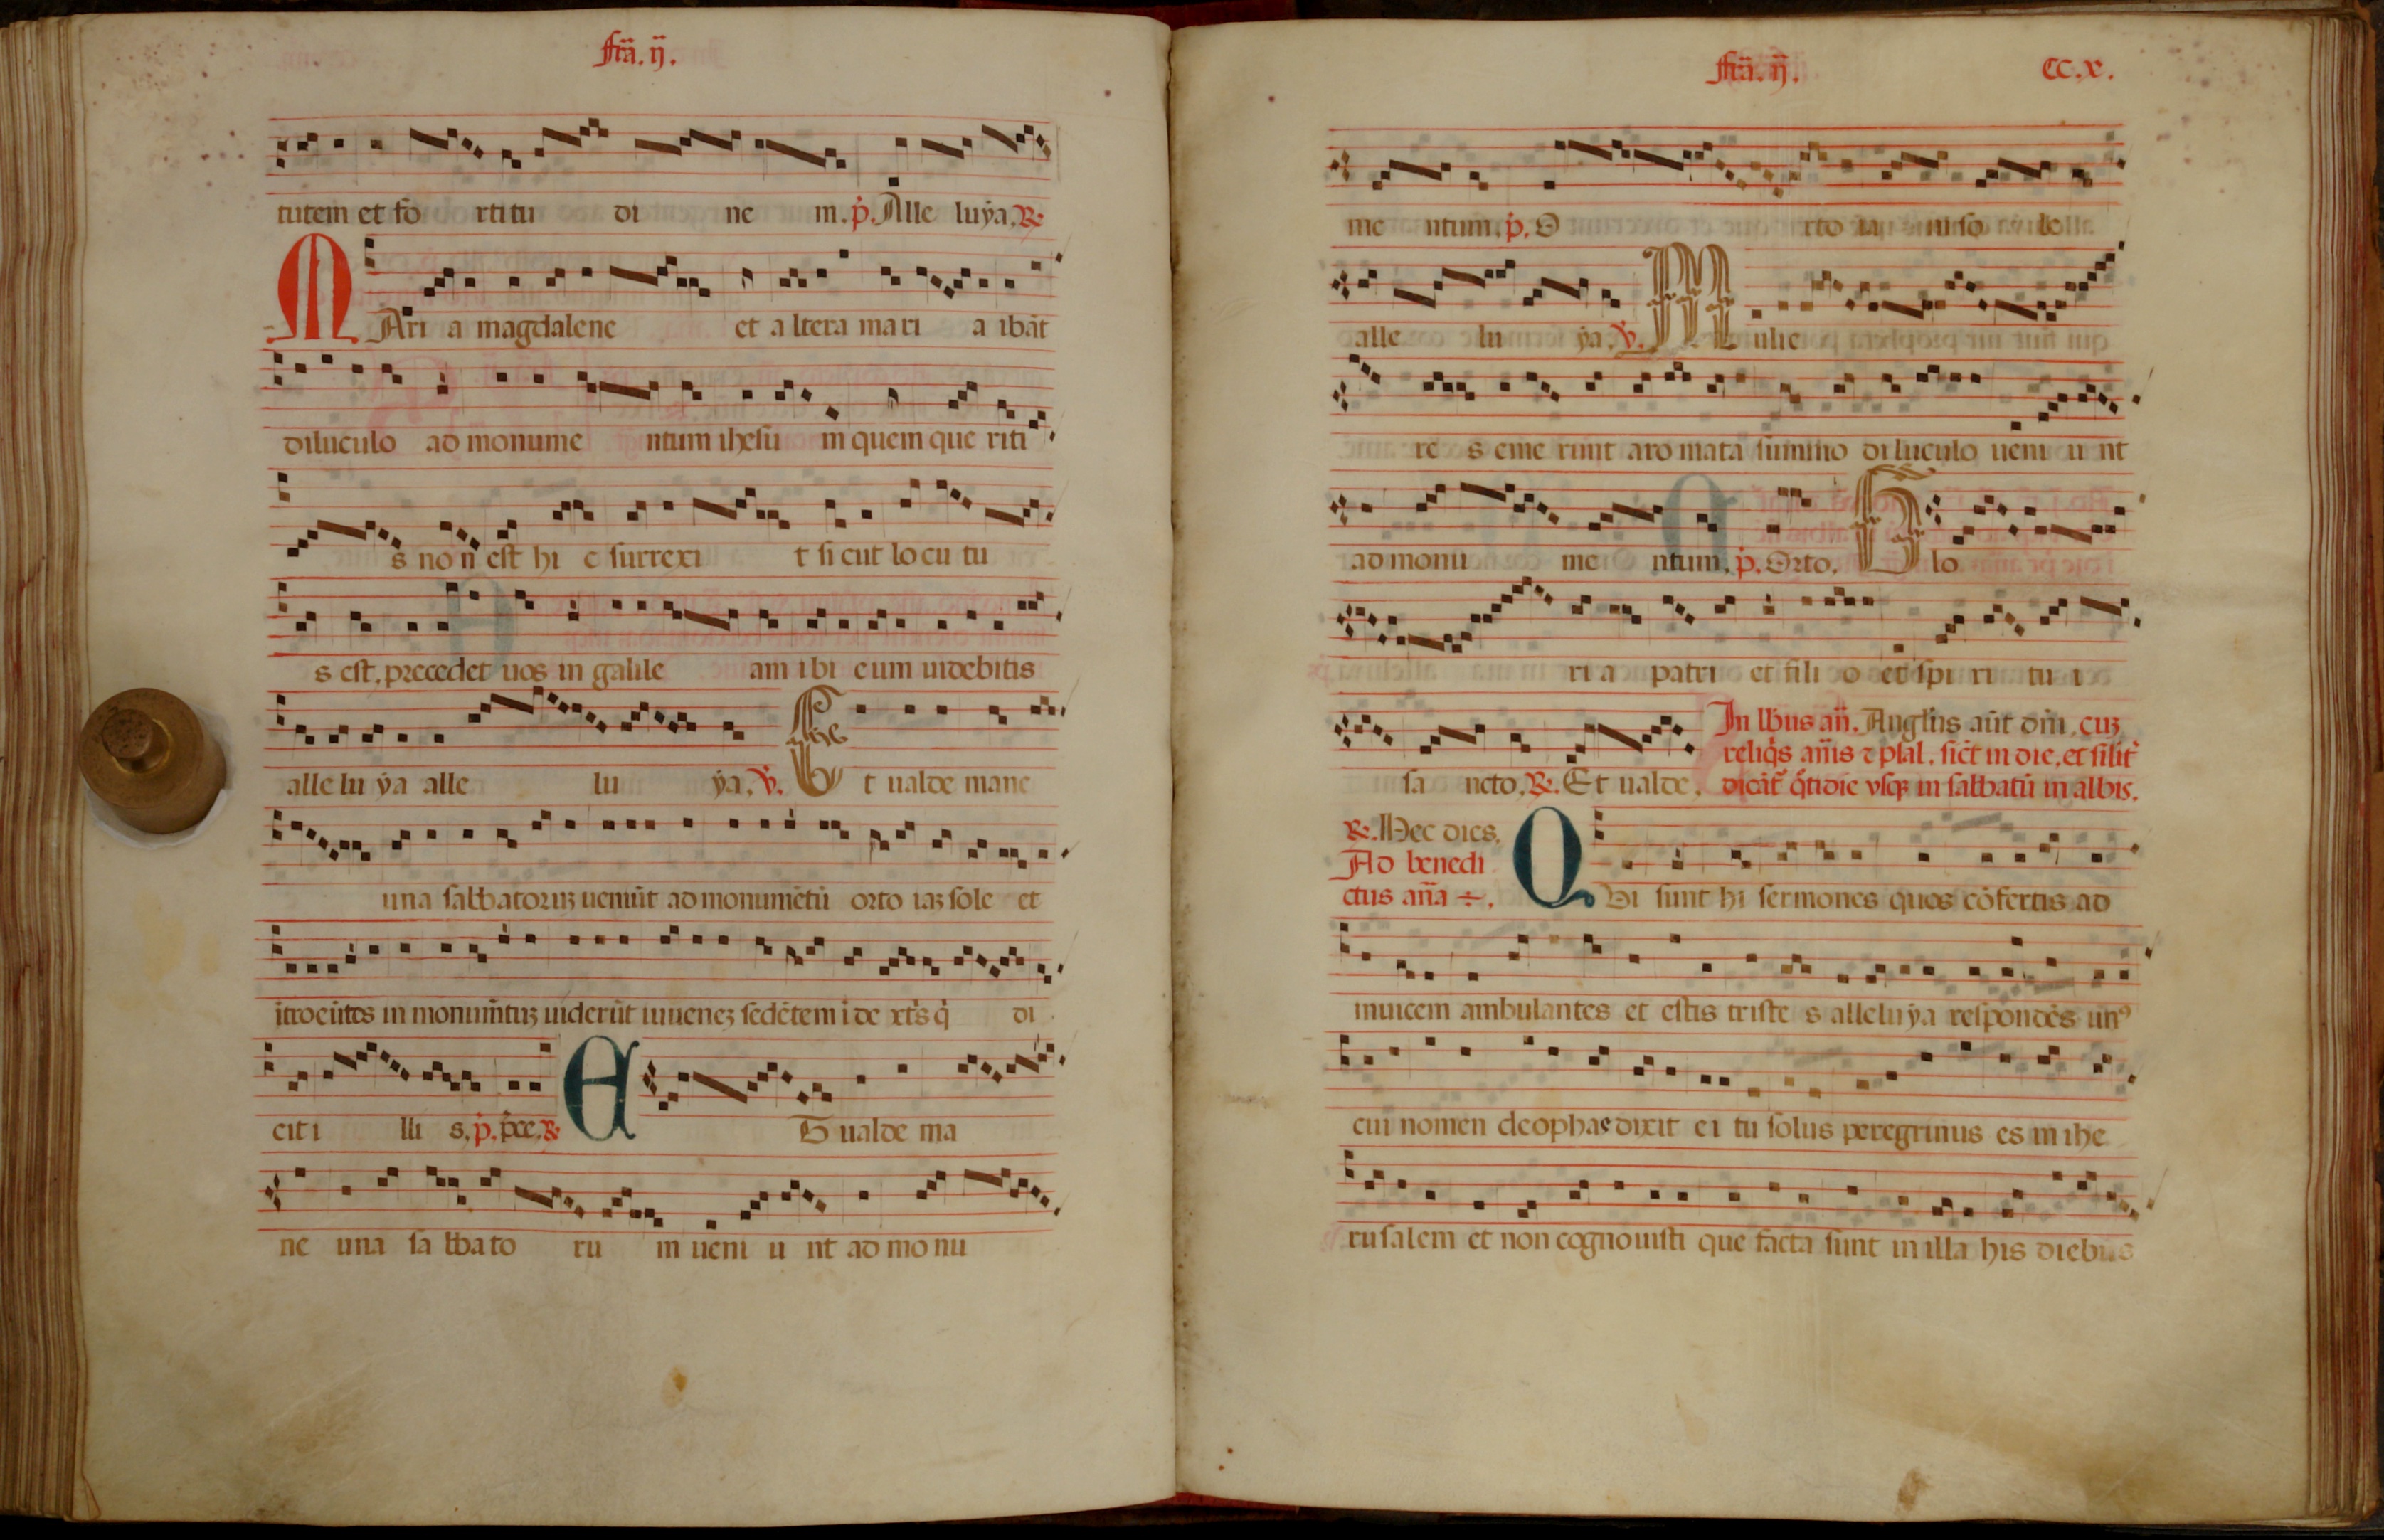 fr̄a. ij.
tutem et fo rtitu di ne m. p̄. Alle luẏa. R̷
MAri a magdalene et a ltera ma ri a ibāt
diluculo ad monume ntum ihesu m quem que riti
s no n est hi c surrexi t si cut lo cu tu
s est. precedet uos in galile am i bi eum uidebitis
alle lu ẏa alle lu ẏa. v̇. Et ualde mane
una sabbatoruʒ ueniūt ad monumētū orto iaʒ sole et
itroeūtes in monum̄tuʒ uiderūt iuueneʒ sedētem i de xt̄s q̇ di
cit i lli s. p̄. p̄ce. R̷ ET ualde ma
ne una sa bba to ru m ueni u nt ad mo nu
fr̄a. ij.
CC. x.
me ntum. p̄. O rto ia m so le
alle lu ẏa. v̇. Mulie
re s eme runt aro mata summo di luculo ueni u nt
ad monu me ntum. p̄. Orto. Glo
ri a patri et fili o et spi ri tu i
sa ncto. R̷. Et ualde.
In lbus an̄. Anglus aūt dn̄i. cuʒ
reliq̄s an̄is ⁊ psal. sic̄t in die. et sīlit̄
dicāt̄ q̄tidie vsqʒ in sabbatū in albis.
R̷. Hec dies.
Ad benedi
ctus an̄a ÷.
QVi sunt hi sermones quos cōfertis ad
inuicem ambulantes et estis triste s alleluẏa respondēs unꝰ
cui nomen cleophas dixit ei tu solus peregrinus es in ihe
rusalem et non cognouisti que facta sunt in illa his diebus